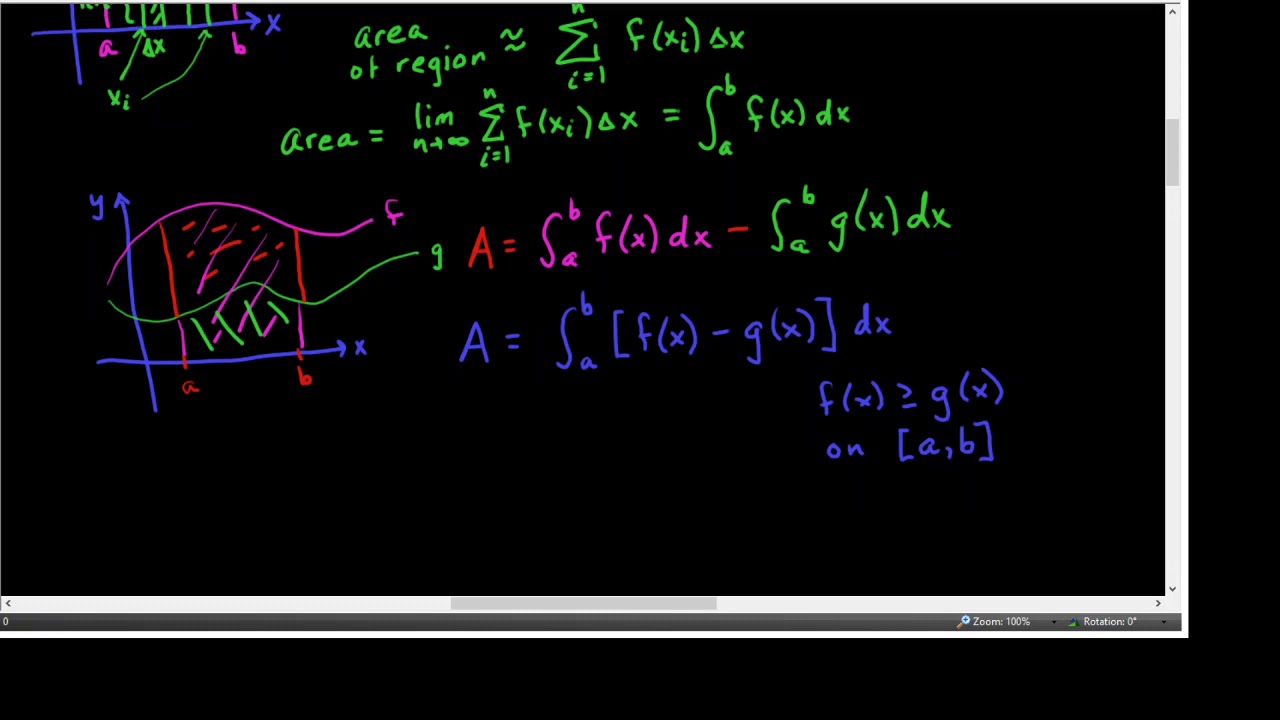 a Δx b x
xi
area
of region ≈ n Σ i=1 f(xi) Δx
area = lim n→∞ n Σ i=1 f(xi) Δx = ∫ₐᵇ f(x) dx
y f
g
x
a b
A = ∫ₐᵇ f(x) dx − ∫ₐᵇ g(x) dx
A = ∫ₐᵇ [f(x) − g(x)] dx
f(x) ≥ g(x)
on [a,b]
0 Zoom: 100% Rotation: 0°